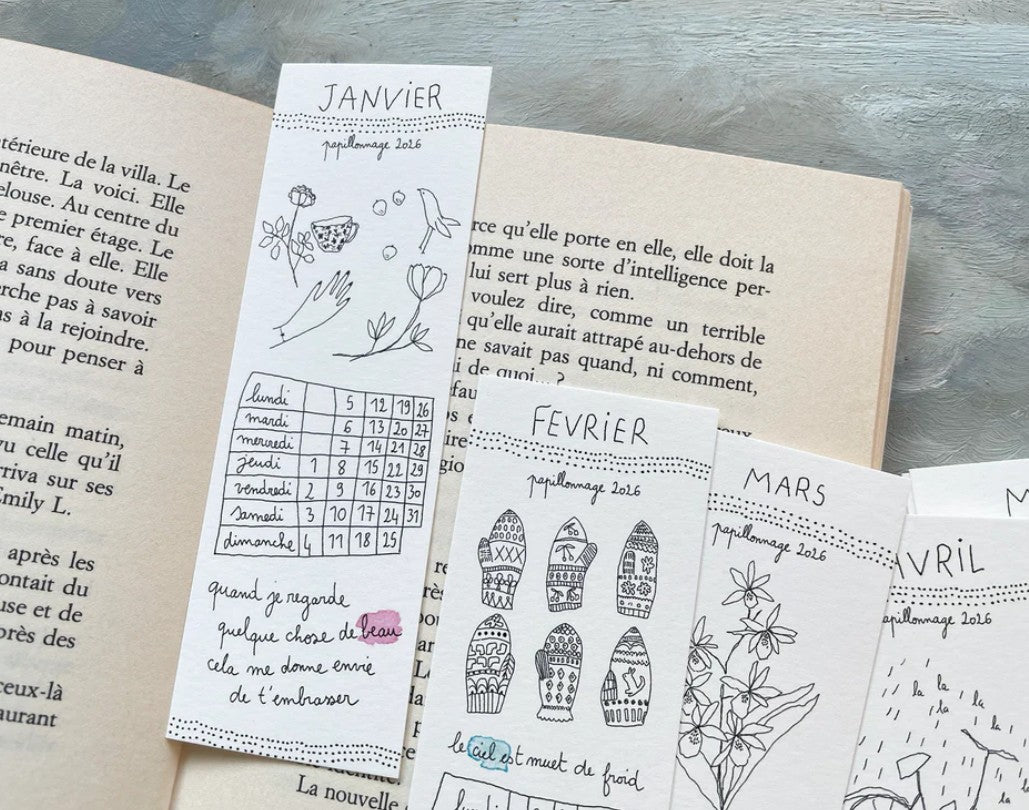 térieure de la villa. Le
nêtre. La voici. Elle
elouse. Au centre du
e premier étage. Le
re, face à elle. Elle
a sans doute vers
erche pas à savoir
as à la rejoindre.
pour penser à
emain matin,
vu celle qu'il
arriva sur ses
Emily L.
après les
ontait du
use et de
près des
ceux-là
aurant
JANVIER
papillonnage 2026
lundi 5 12 19 26
mardi 6 13 20 27
mercredi 7 14 21 28
jeudi 1 8 15 22 29
vendredi 2 9 16 23 30
samedi 3 10 17 24 31
dimanche 4 11 18 25
quand je regarde
quelque chose de beau
cela me donne envie
de t'embrasser
rce qu'elle porte en elle, elle doit la
omme une sorte d'intelligence per-
lui sert plus à rien.
voulez dire, comme un terrible
qu'elle aurait attrapé au-dehors de
ne savait pas quand, ni comment,
i de quoi...?
La nouvelle
FEVRIER
papillonnage 2026
le ciel est muet de froid
lundi
MARS
papillonnage 2026
AVRIL
papillonnage 2026
la la
la la
la
M